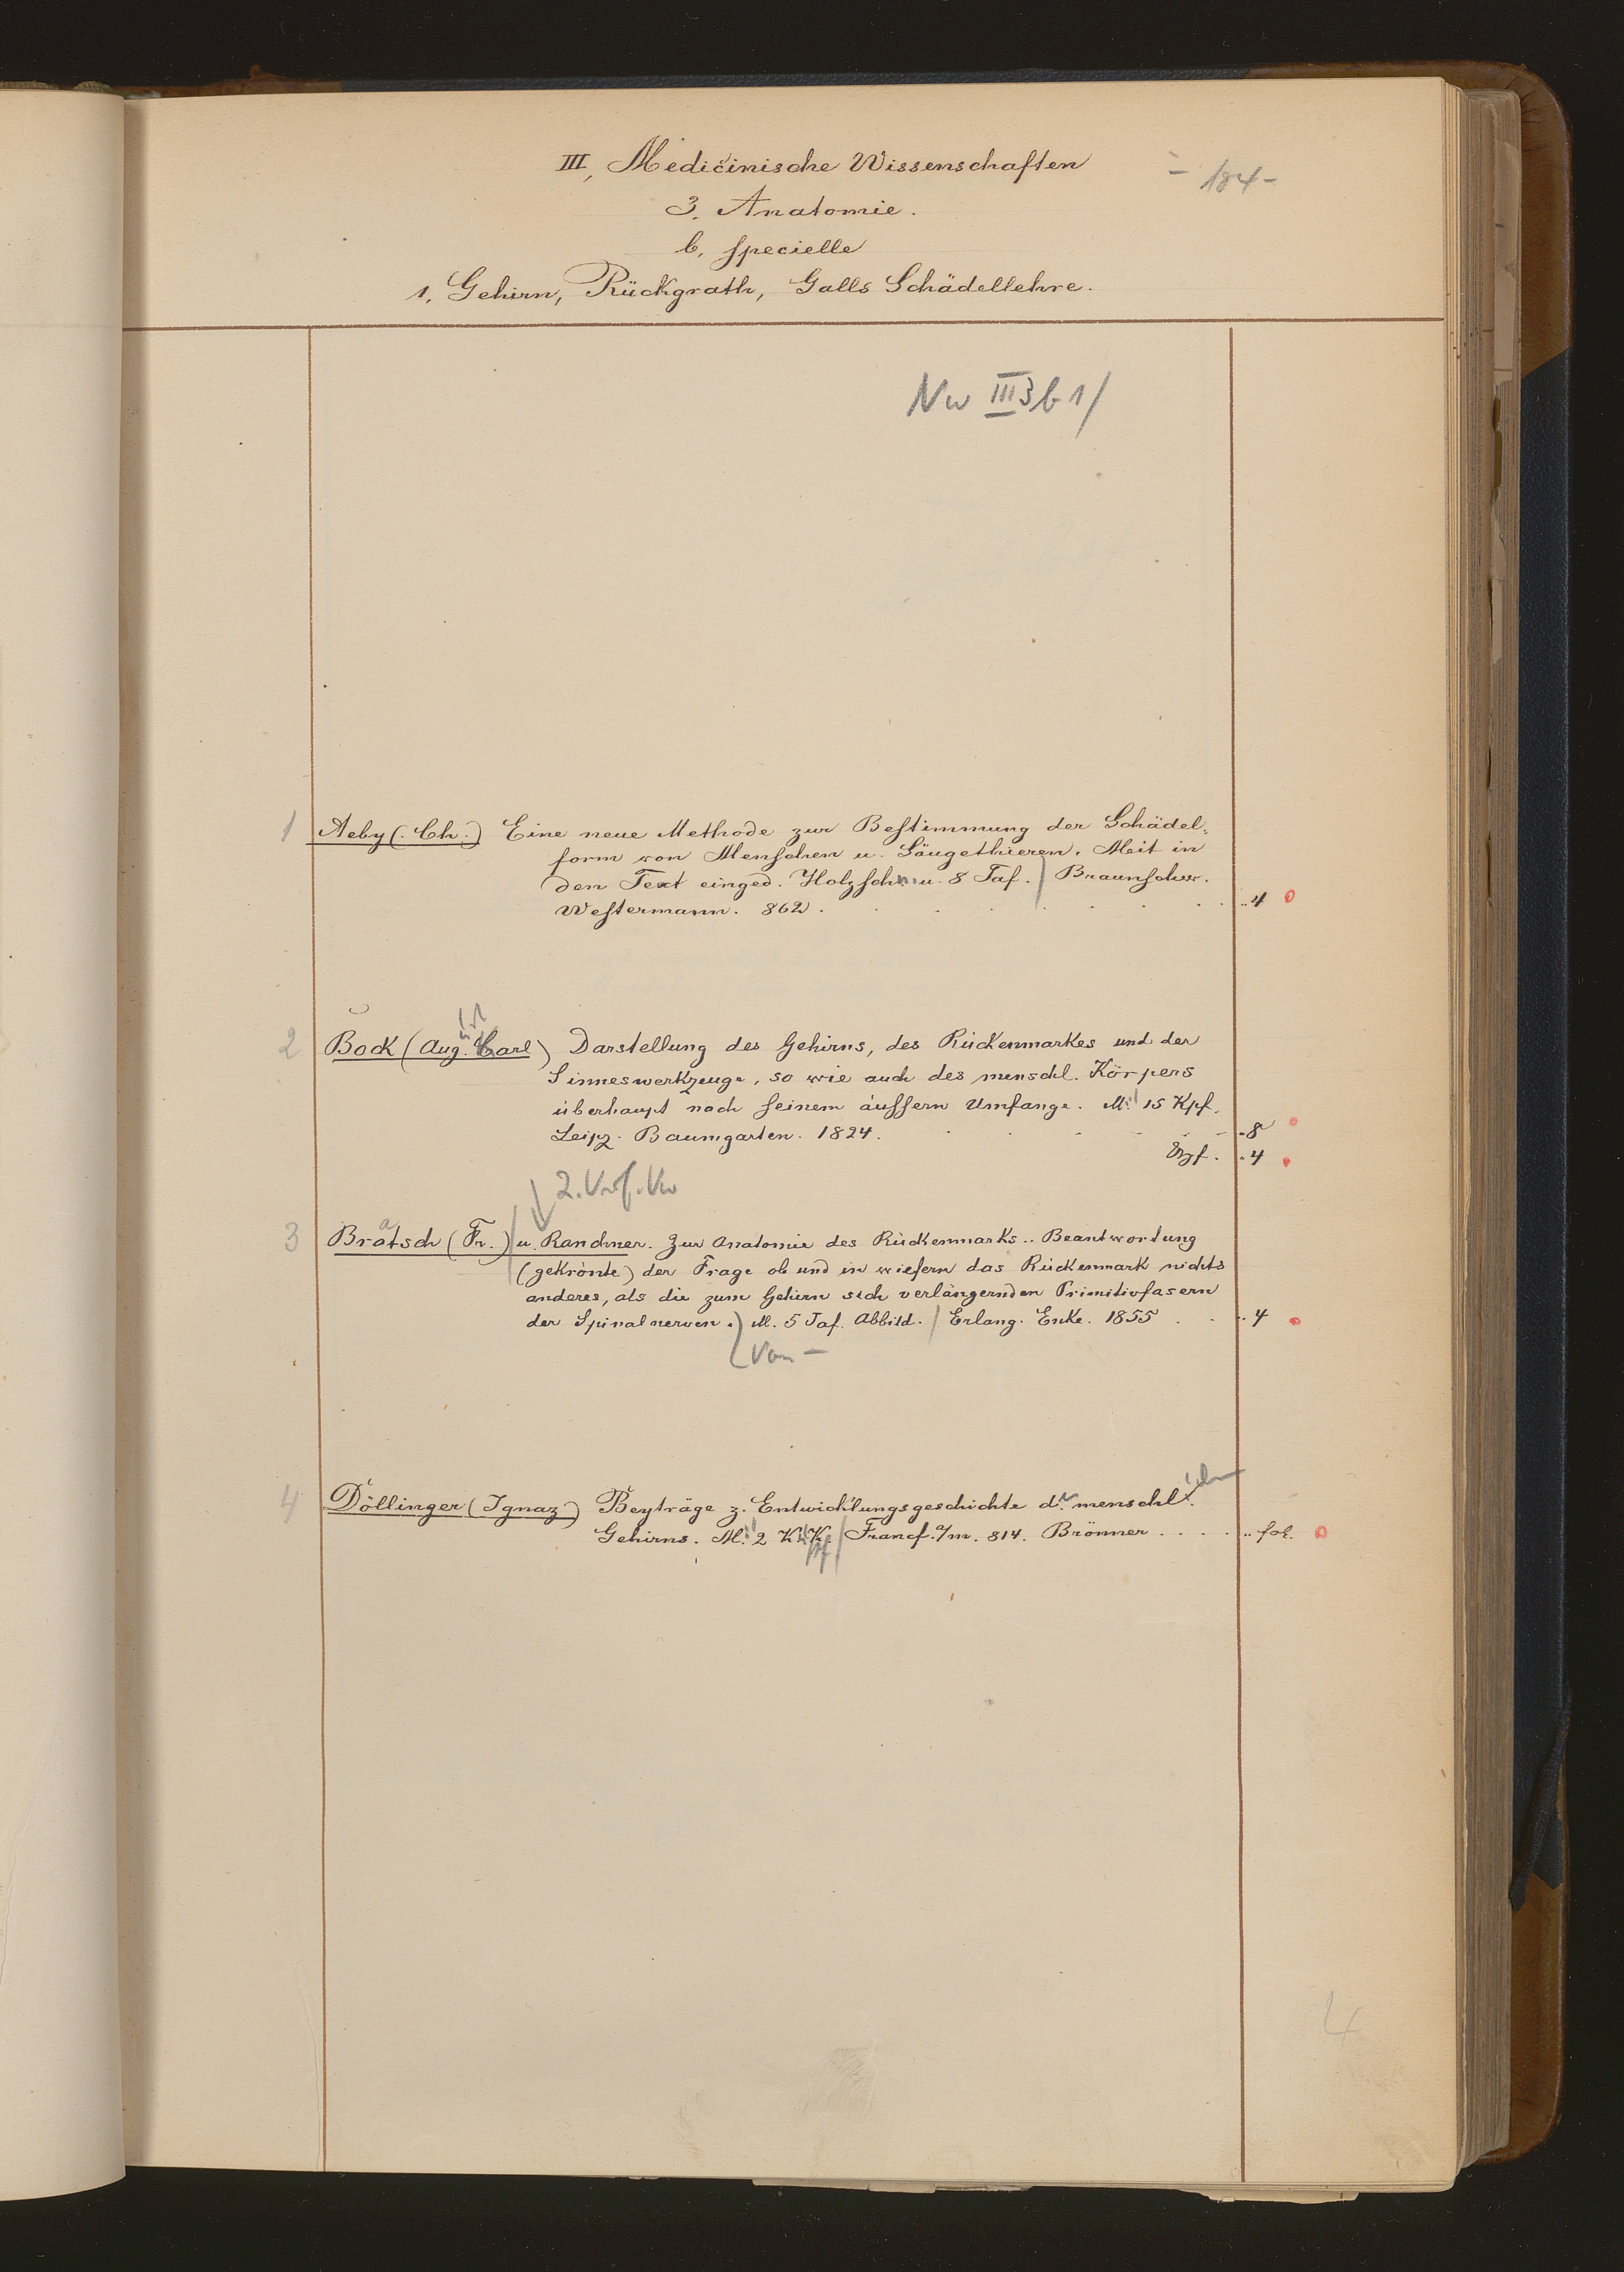 III, Medicinische Wissenschaften
- 184 -
3. Anatomie.
b, specielle
1, Gehirn, Rückgrath, Galls Schädellehre.
Nw III 3 b 1/
1 Aeby (Ch.) Eine neue Methode zur Bestimmung der Schädel-
form von Menschen u. Säugethieren. Mit in
den Text einged. Holzschn. u. 8 Taf. / Braunschw.
Westermann. 862. .. 4
2 Bock (Aug. Carl) Darstellung des Gehirns, des Rückenmarkes und der
Sinneswerkzeuge, so wie auch des menschl. Körpers
überhaupt nach seinem äussern Umfange. M. 15 Kpf.
Leipz. Baumgarten. 1824. .. 8
.. 4
2. Verf. Vw
3 Bratsch (Fr.) u. Ranchner. Zur Anatomie des Rückenmarks .. Beantwortung
(gekrönte) der Frage ob und in wiefern das Rückenmark nichts
anderes, als die zum Gehirn sich verlängernden Primitivfasern
der Spinalnerven.) M. 5 Taf. Abbild. / Erlang. Enke. 1855 . .. 4
4 Döllinger (Ignaz) Beyträge z. Entwicklungsgeschichte d. menschl.
Gehirns. M. 2 KK. / Francf. a/m. 814. Brönner .... .. fol.
4